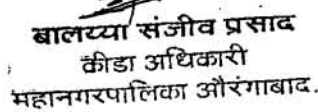 बालय्या संजीव प्रसाद
कीडा अधिकारी
महानगरपालिका औरंगाबाद.